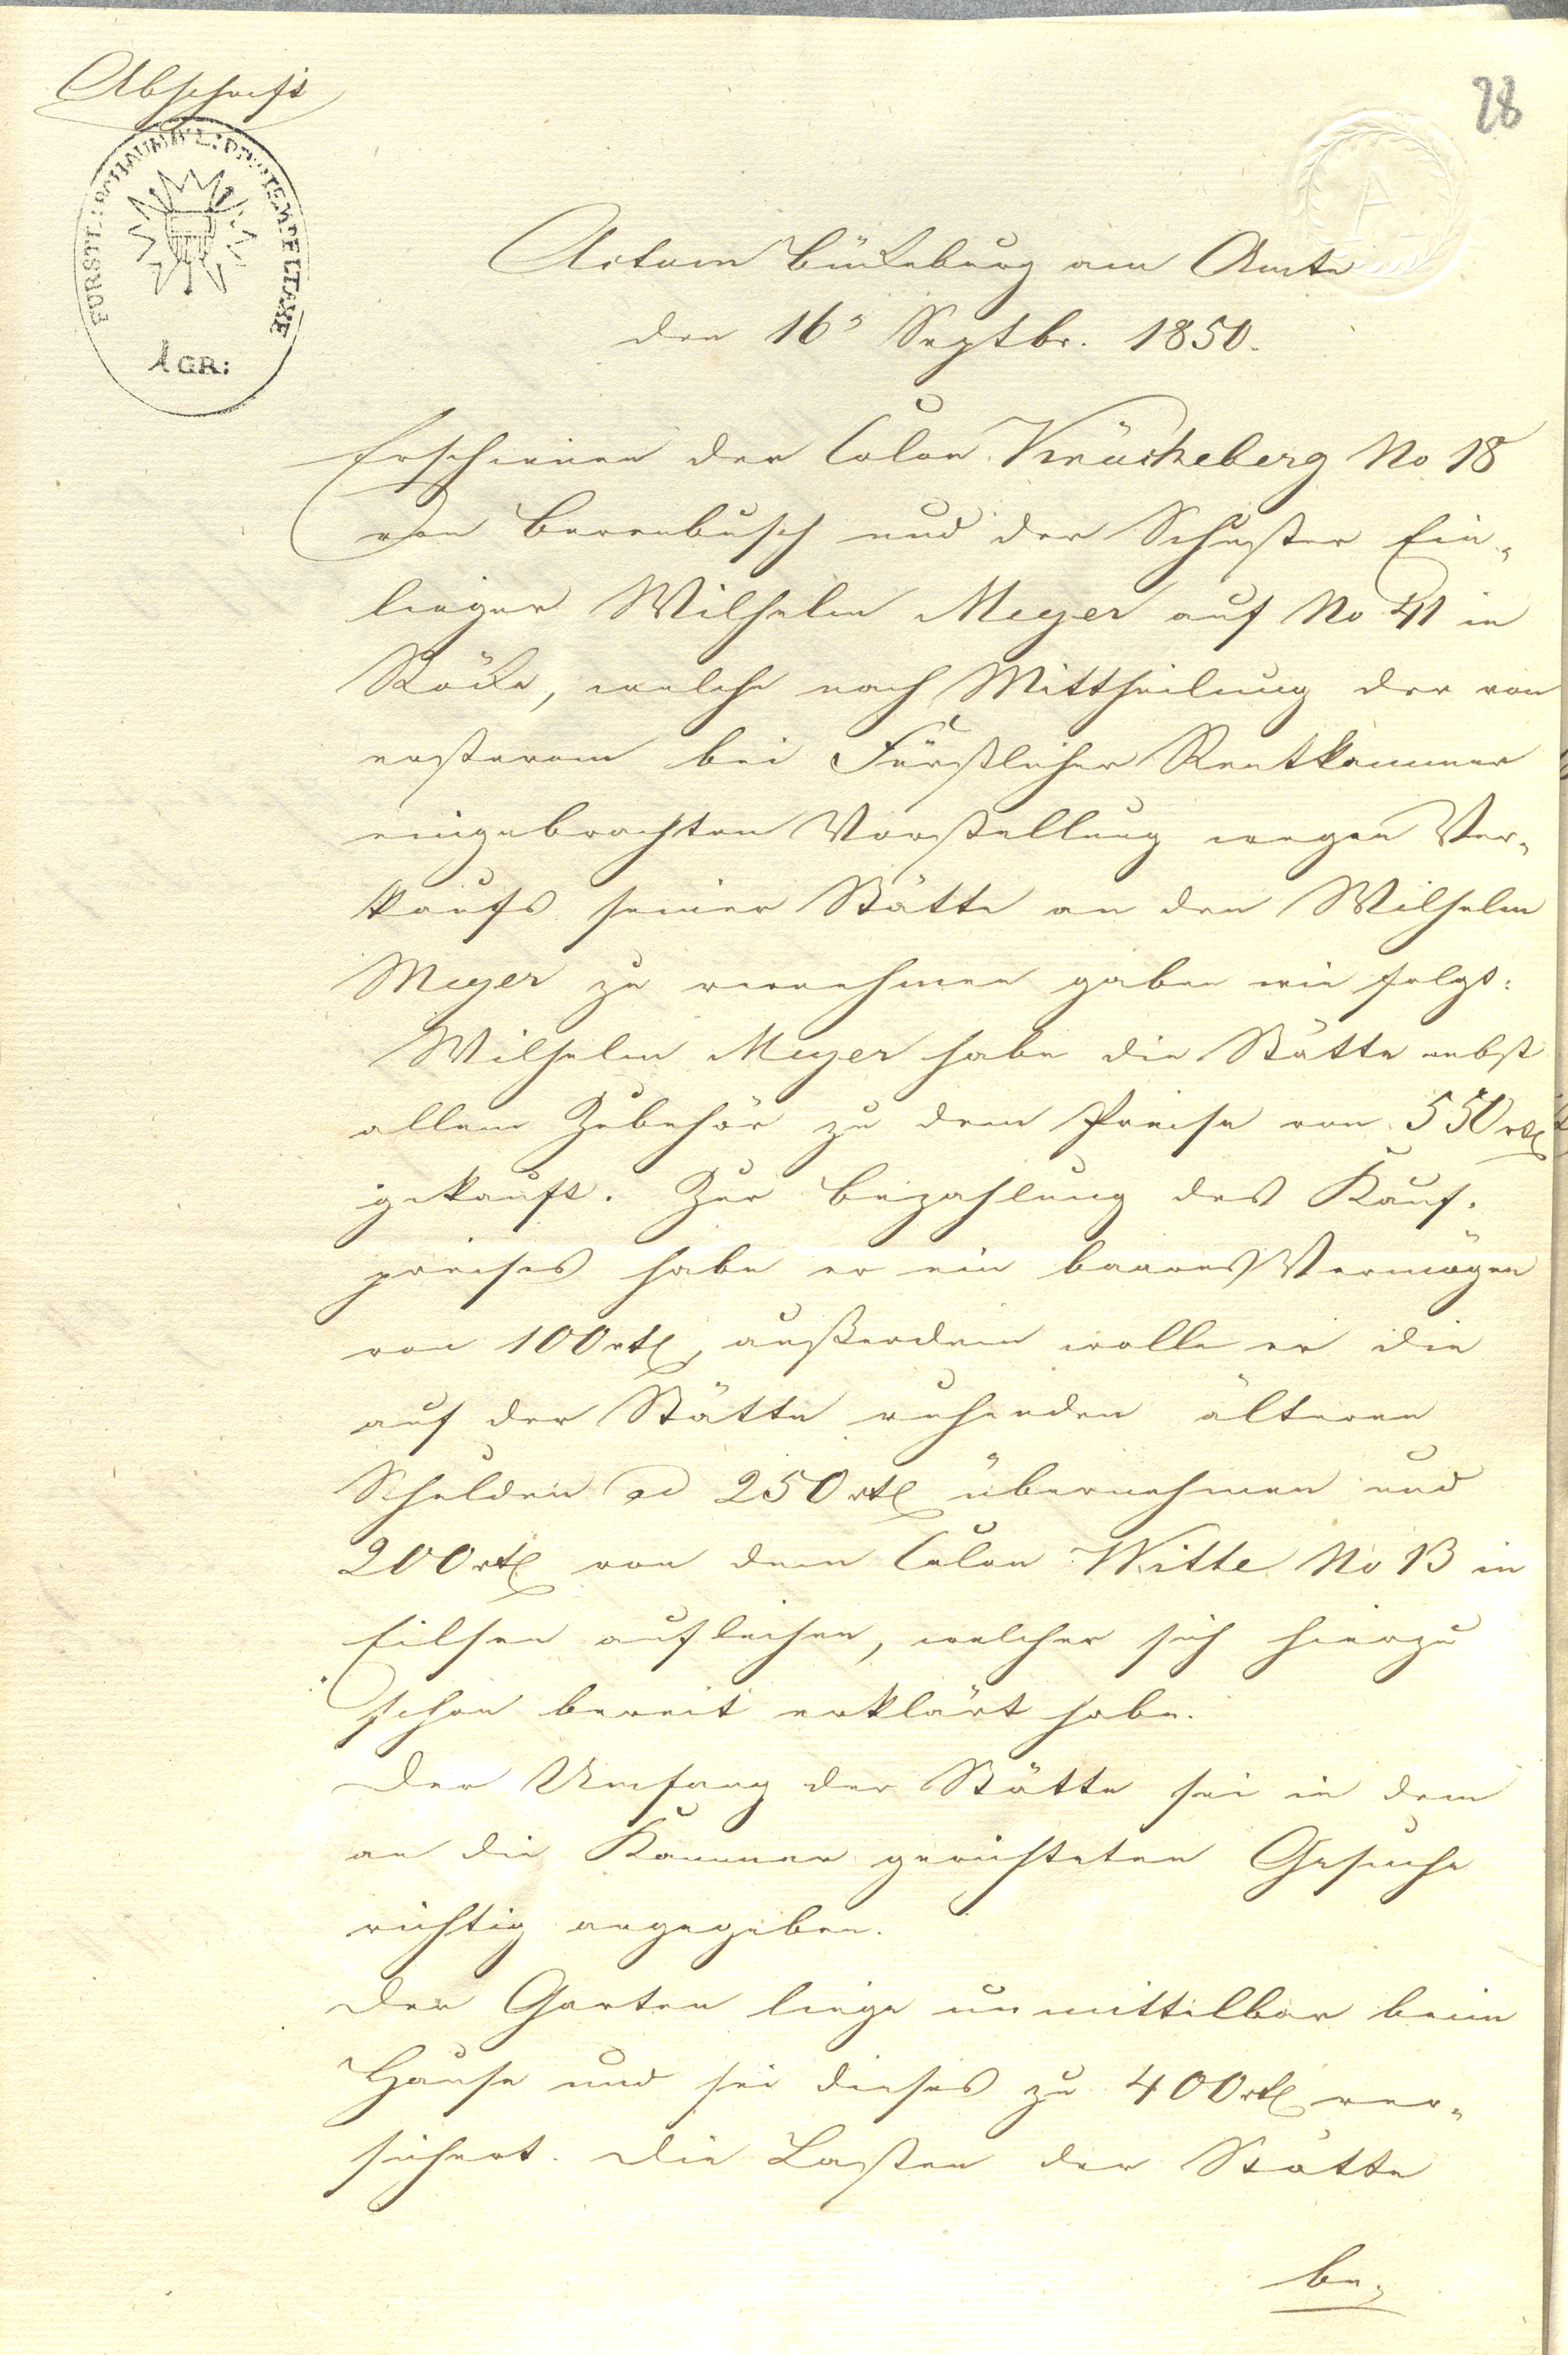 Abschrift
28
FÜRSTL: SCHAUMB: L: STEMPELTAXE
1 GR:
A
Actum Bückeburg am Amte
den 16ⁿ Septbr. 1850.
Erschienen der Colon Krückeberg No 18
von Berenbusch und der Schuster Ein-
lieger Wilhelm Meyer auf No 41 in
Röcke, welche nach Mittheilung der von
ersterem bei Fürstlicher Rentkammer
eingebrachten Vorstellung wegen Ver-
kaufs seiner Stätte an den Wilhelm
Meyer zu vernehmen gaben wie folgt:
Wilhelm Meyer habe die Stätte nebst
allem Zubehör zu dem Preise von 550 rtl
gekauft. Zur Bezahlung des Kauf-
preises habe er ein baares Vermögen
von 100 rtl, außerdem wolle er die
auf der Stätte ruhenden älteren
Schulden ad 250 rtl übernehmen und
200 rtl von dem Colon Witte No 13 in
Eilsen aufleihen, welcher sich hierzu
schon bereit erklärt habe.
Der Umfang der Stätte sei in dem
an die Kammer gerichteten Gesuche
richtig angegeben.
Der Garten liege unmittelbar beim
Hause und sei dieses zu 400 rtl ver-
sichert. Die Lasten der Stätte
be-